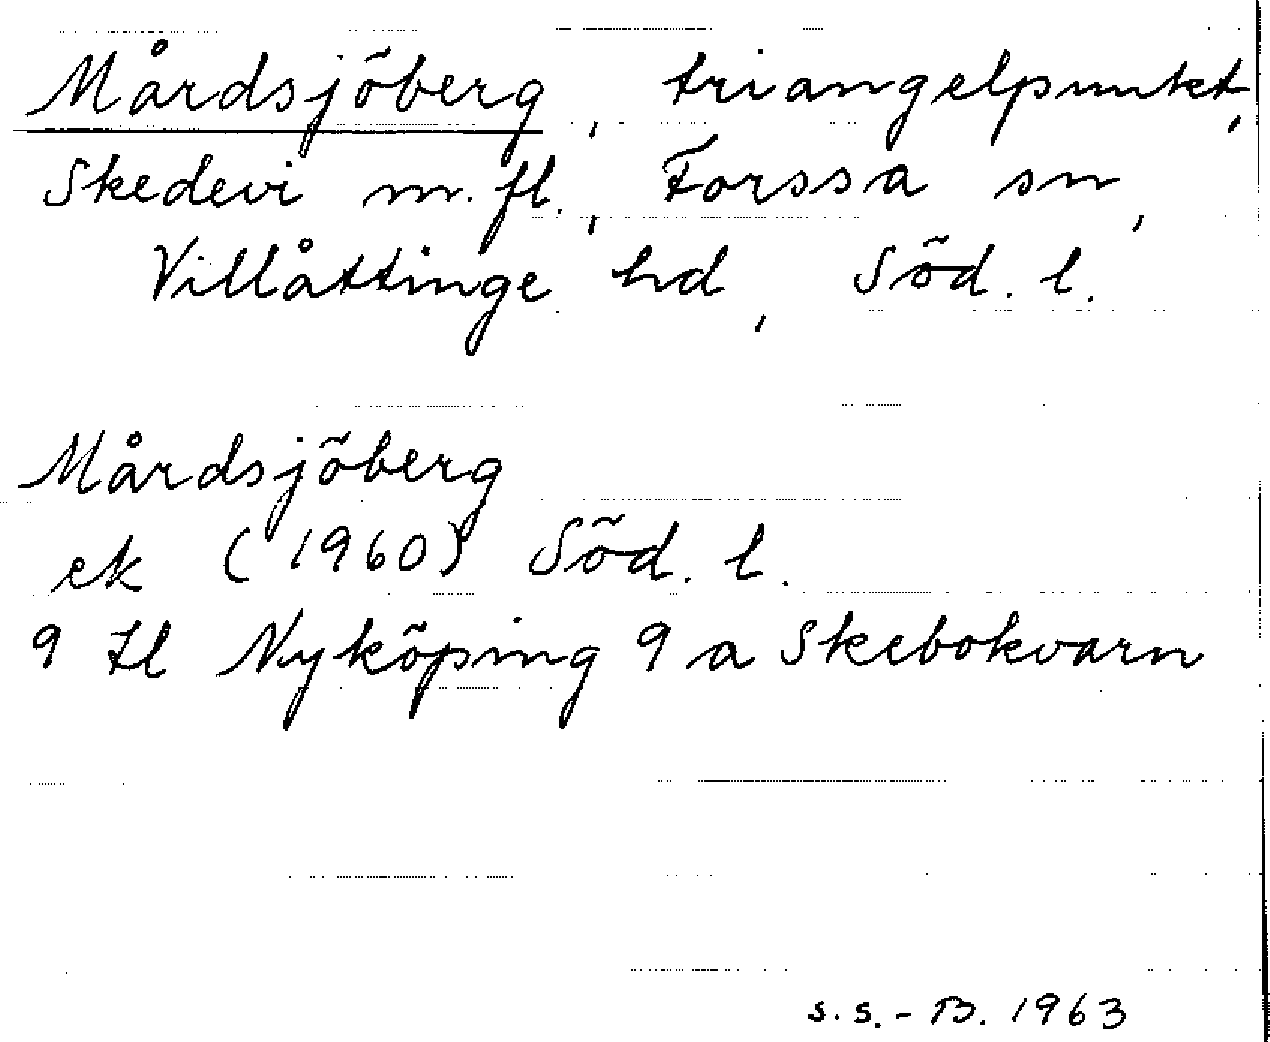 Mårdsjöberg, triangelpunkt,
Skedevi m. fl., Forssa sn,
Villåttinge hd, Söd. l.
Mårdsjöberg
ek (1960) Söd. l.
9 Il Nyköping 9 a Skebokvarn
s. s. - B. 1963